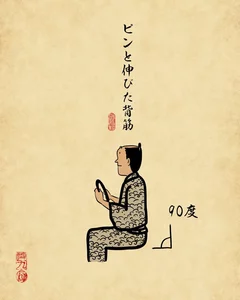 ピンと伸びた背筋
90度